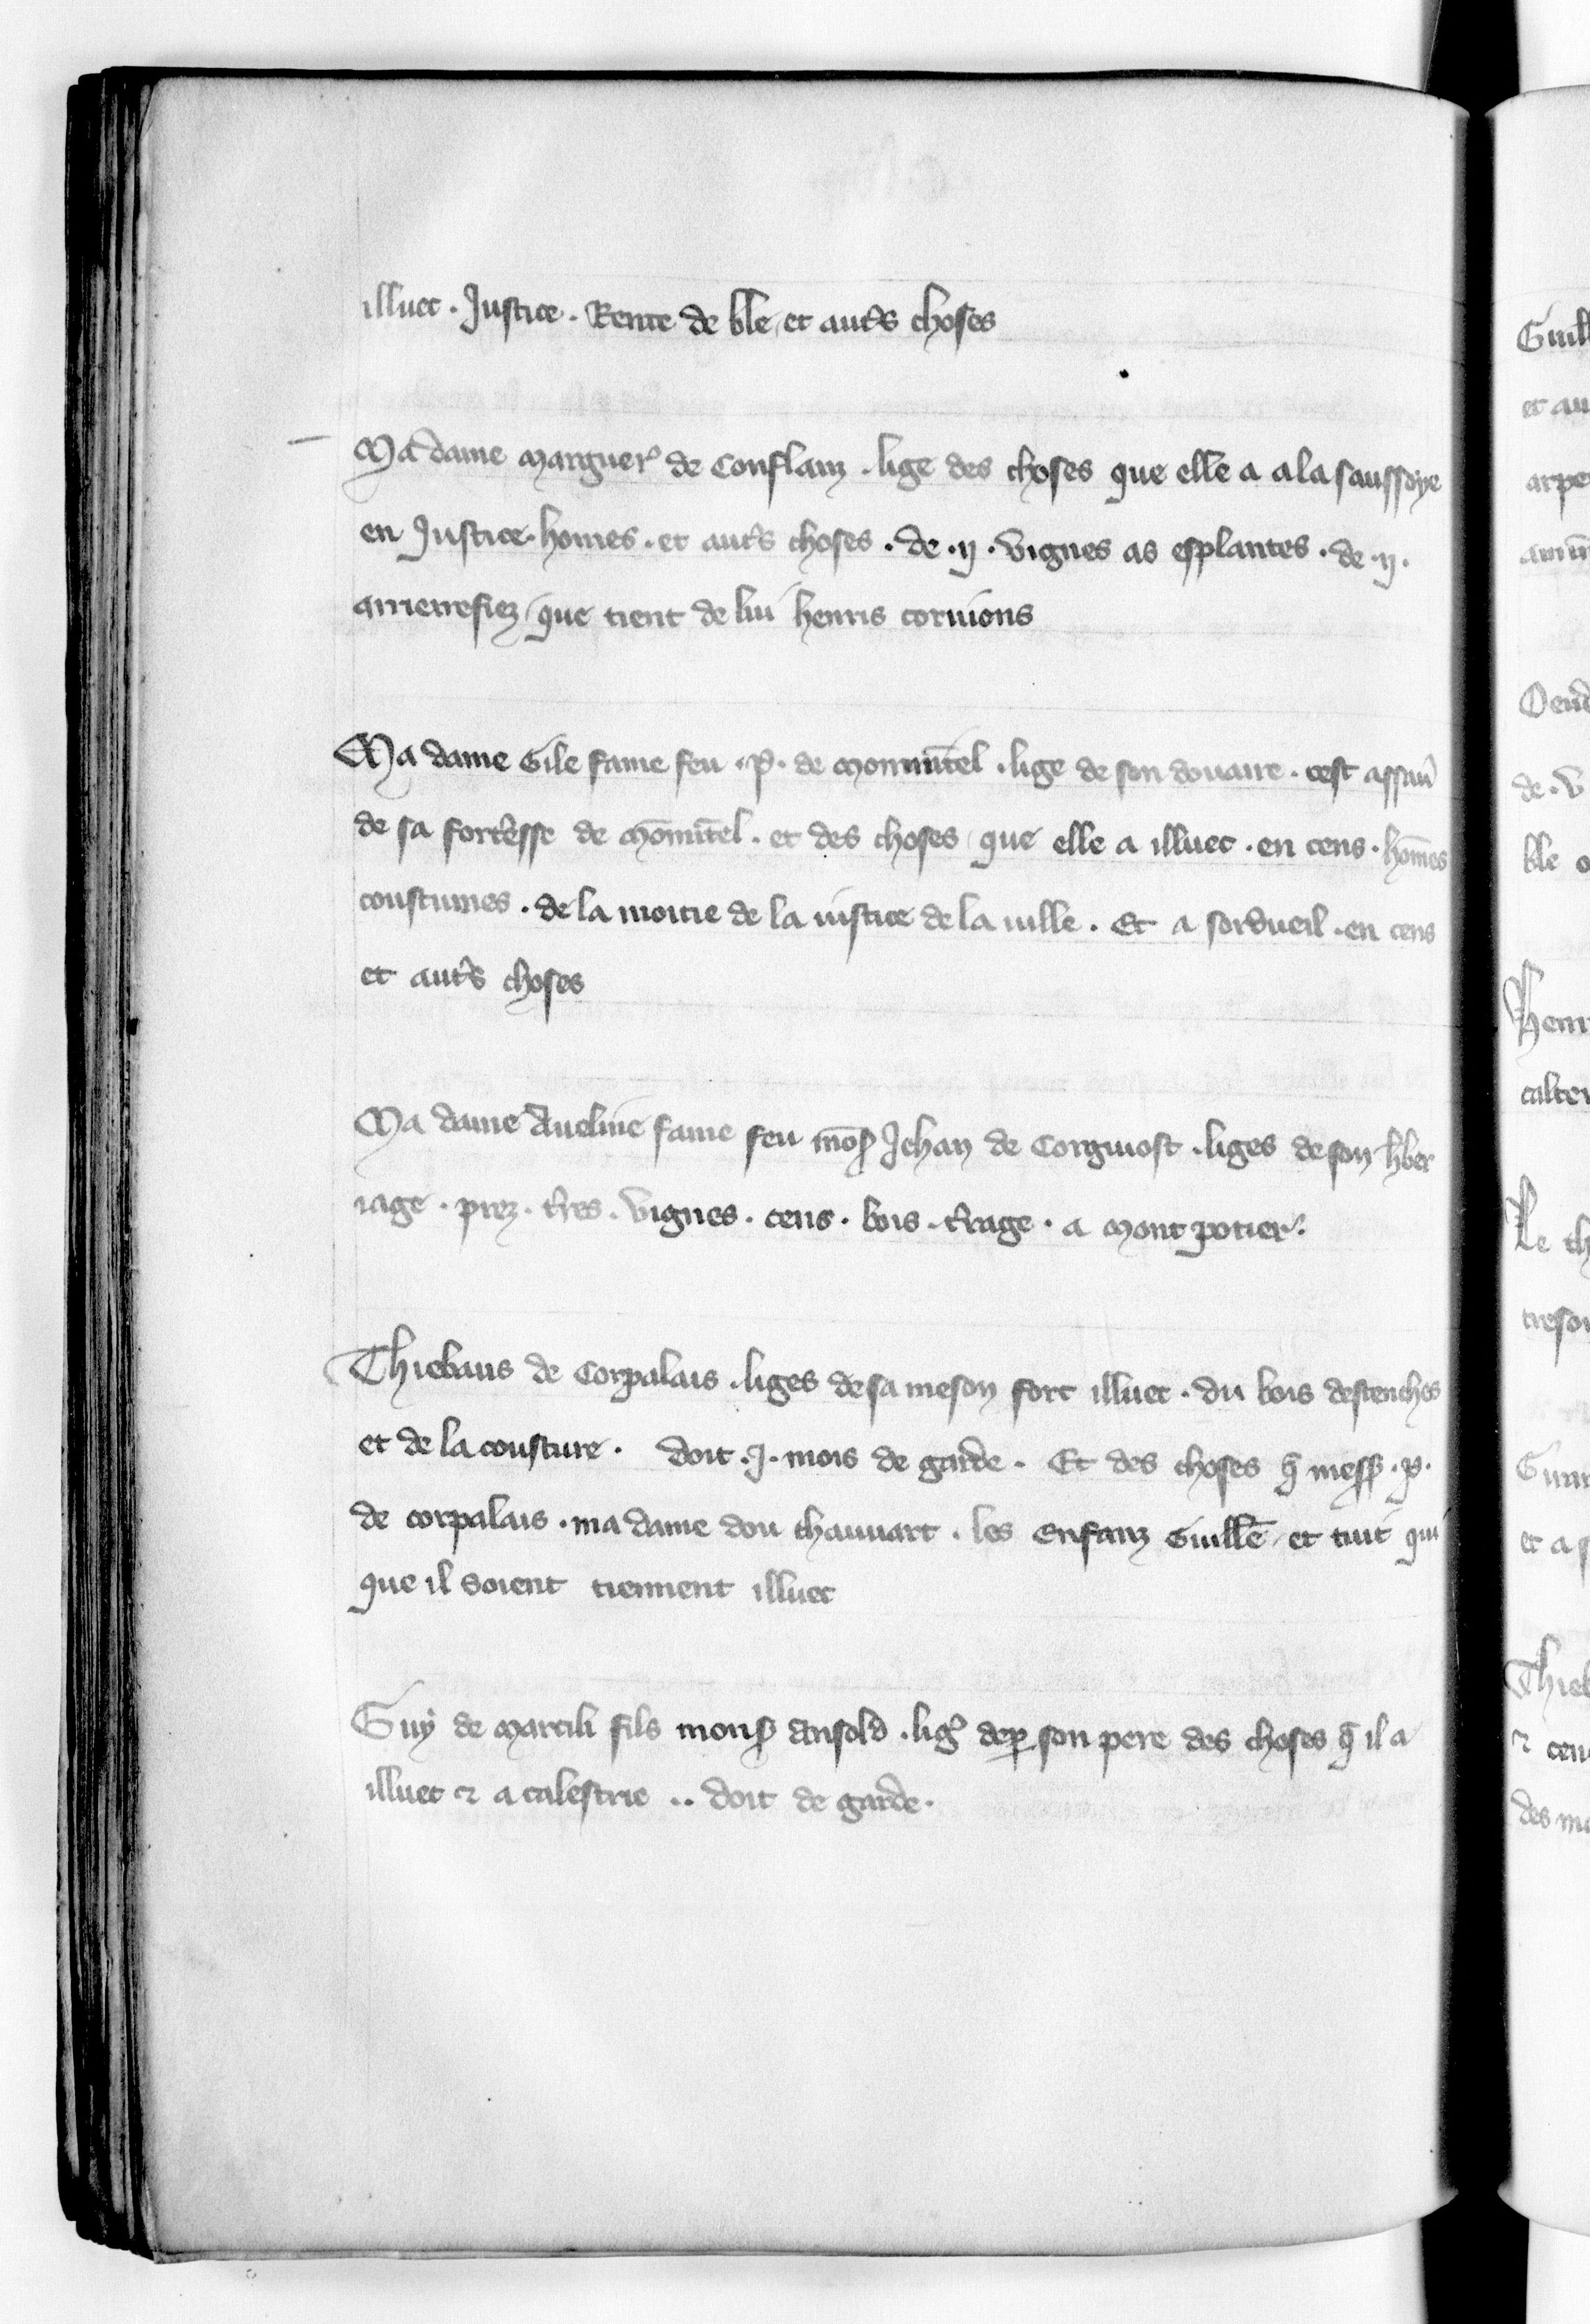 illuec . Justice . Rente de ble et aut's choses
Ma dame marguer' de Conflanz . lige des choses que elle a a la saussoye
en Justice . homes . et aut's choses . de . ij . vignes as esplantes . de . ij .
arrierefiez que tient de lui henris cornions
Ma dame Gile fame feu . p . de mommitel . lige de son douaire . cest assau'
de sa fort'esse de mōmitel . et des choses que elle a illuec . en cens . homes
coustumes . de la moitie de la iustice de la uille . Et a sordueil . en cens
et aut's choses
Ma dame Aueline fame feu mōs Jehan de Corgiuost . liges de son h'ber
iage . prez . t'res . vignes . cens . bois . t'rage . a mont potier .
Thiebaus de Corpalais . liges de sa meson fort illuec . du bois destenches
et de la cousture . doit . j . mois de garde . Et des choses q̄ mess' . p .
de corpalais . ma dame dou chauuart . les enfanz Guill'e et tuit qui
que il soient tiennent illuec
Guy de marcili fils mons' ansold . lig' de p' son pere des choses q̄ il a
illuec ⁊ a calestrie .. doit de garde .
Guill
et au
arpe
de . v
ble
Henr
Le th
treso
et a
Thieb
⁊ cen
des ma